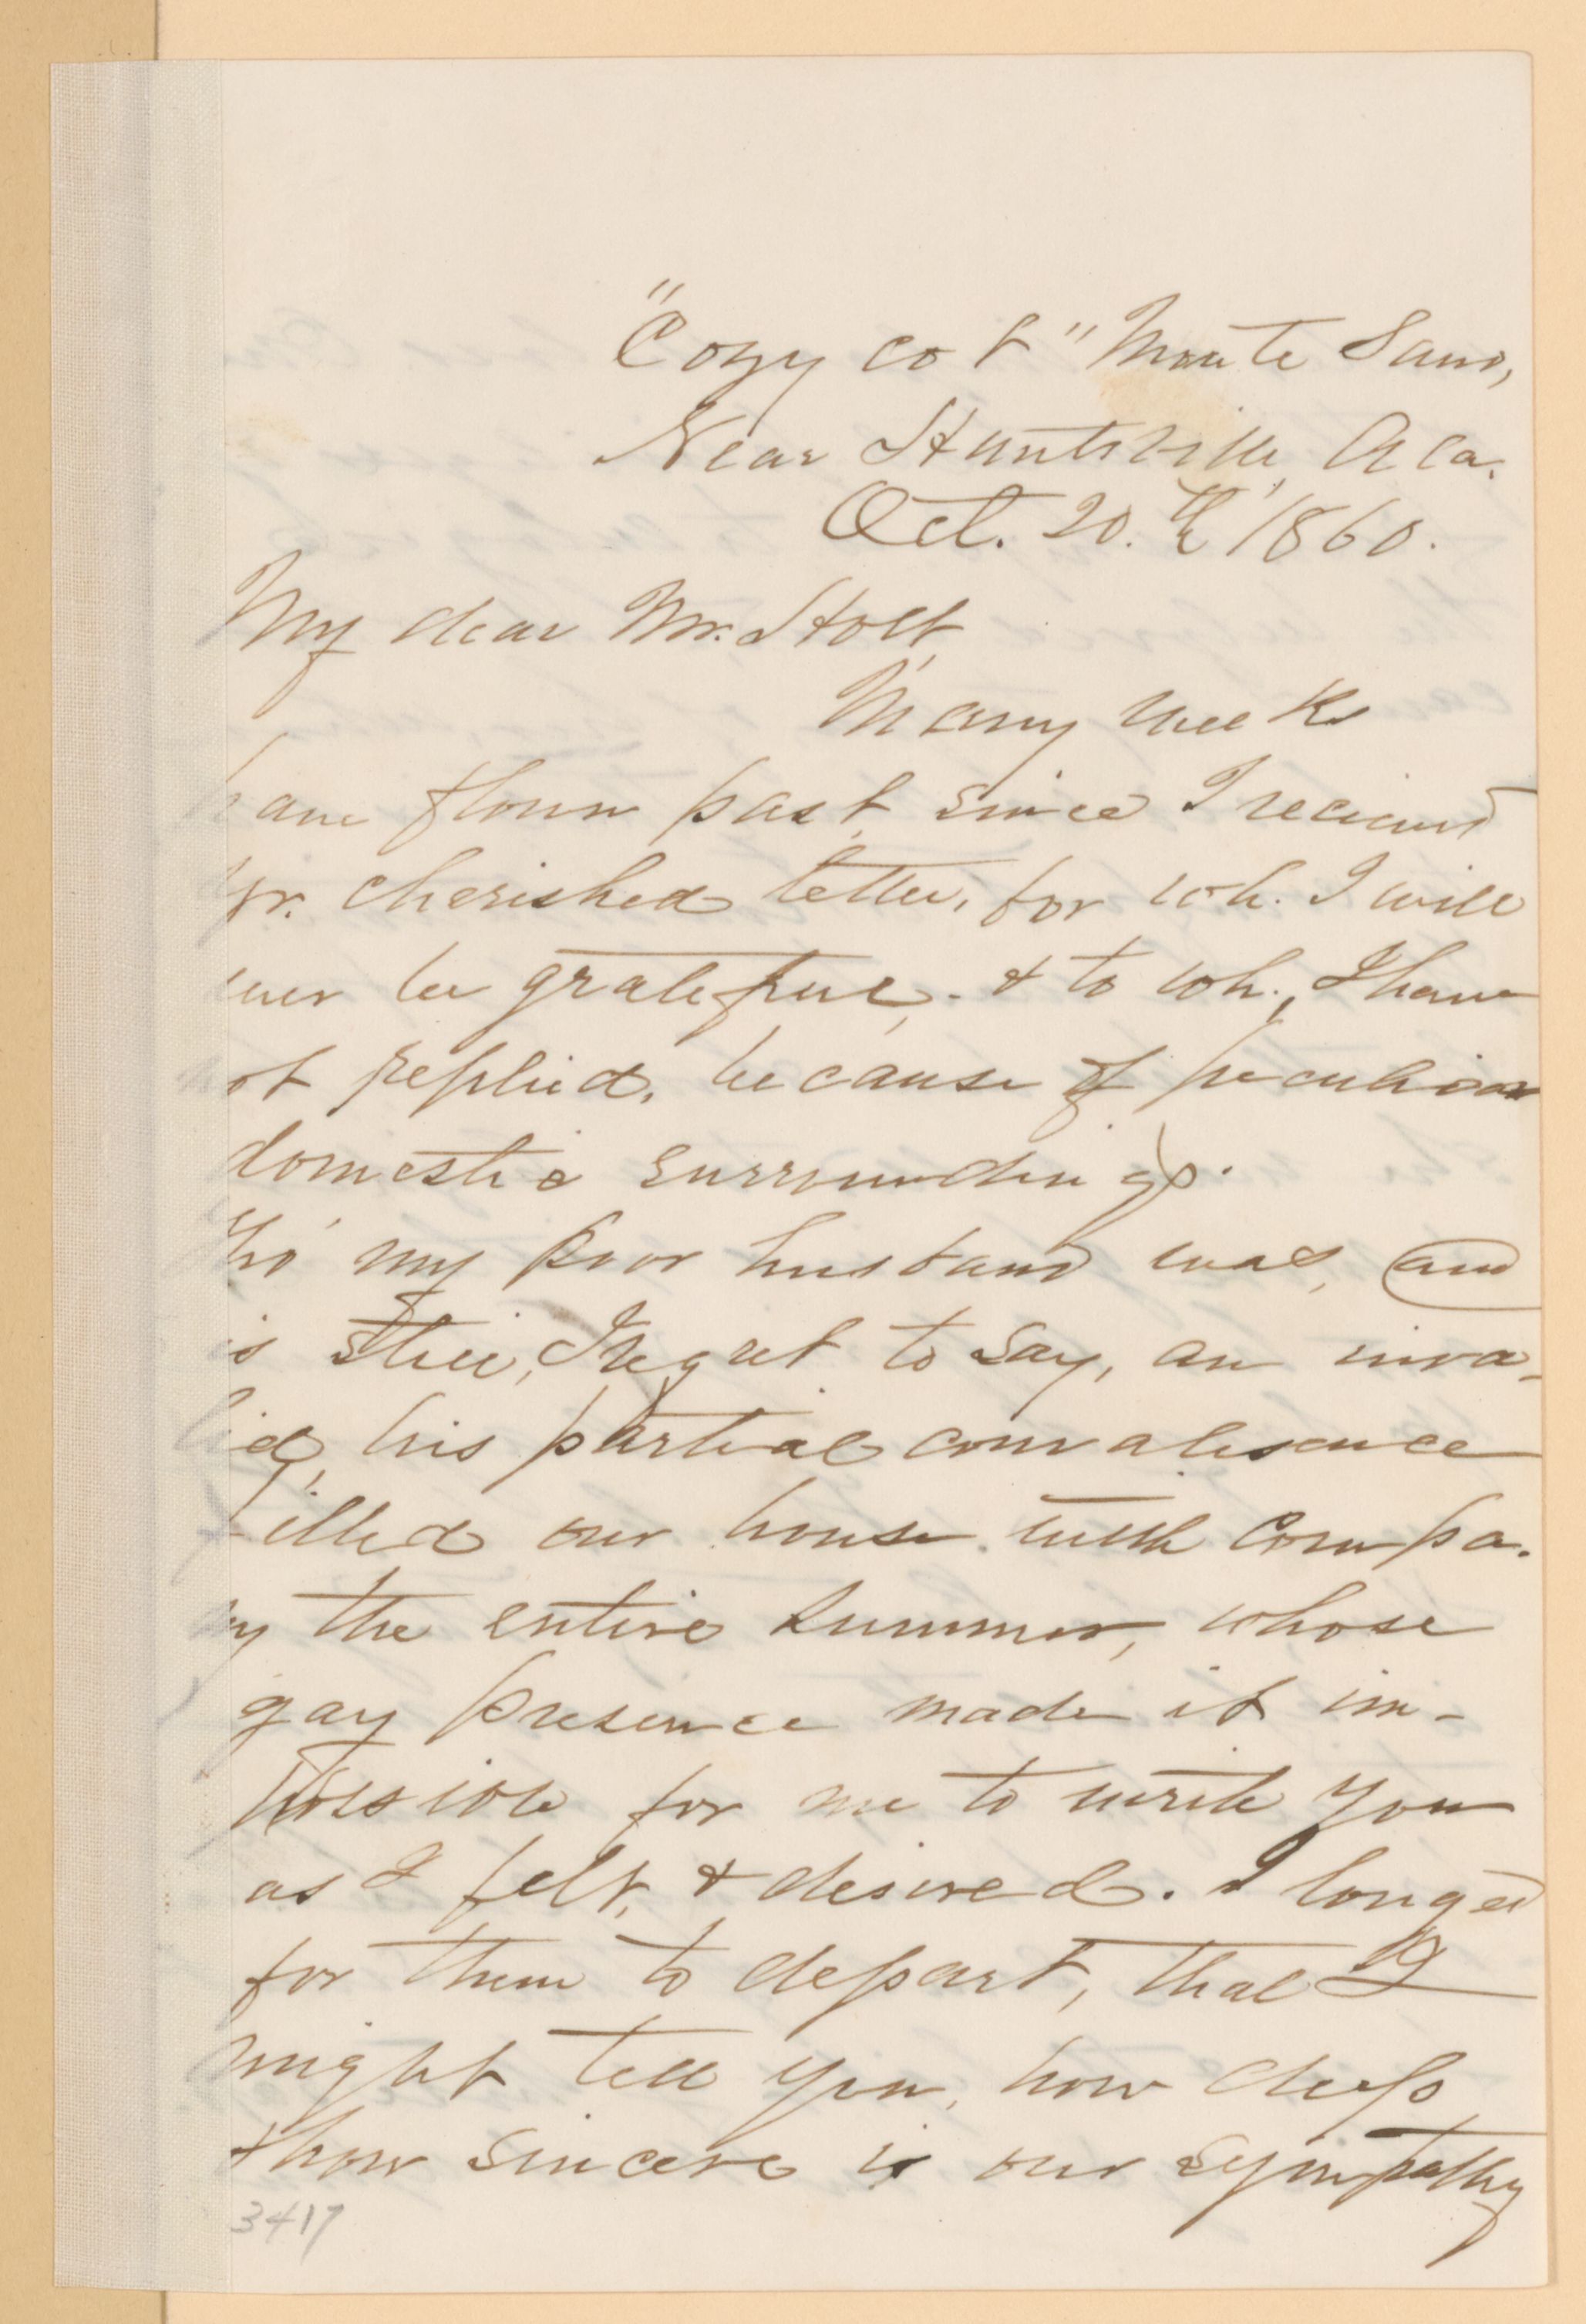 "Cozy cot" Monte Sano,
Near Huntsville, Ala.
Oct. 20.th 1860.
My dear Mr. Holt,
Many weeks
have flown past, since I recieved
yr. cherished letter, for wh. I will
ever be grateful, & to wh., I have
not replied, because of peculiar
domestic surroundings.
Tho' my poor husband was, and
is still, I regret to say, an inva-
lid, his partial convalescence
filled our house with compa-
ny the entire summer, whose
gay presence made it im-
possible for me to write you
as I felt, & desired. I longed
for them to depart, that I
might tell you, how deep
& how sincere is our sympathy
3417